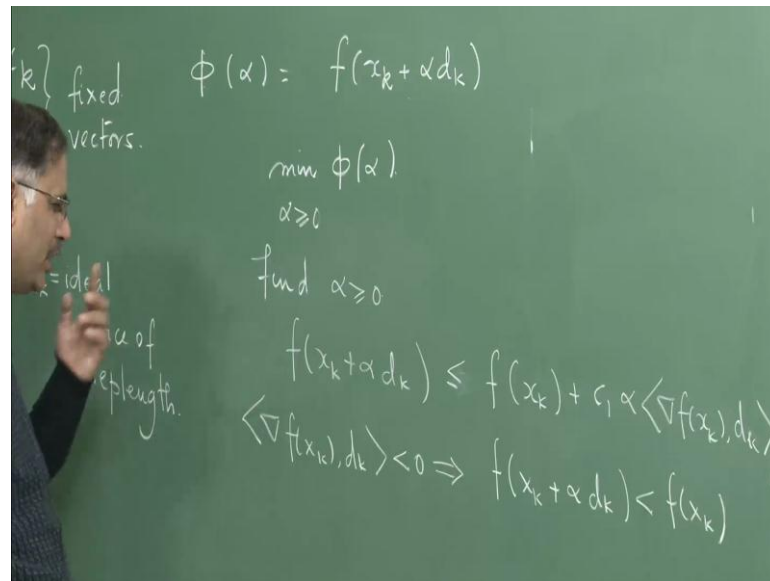 k} fixed
vectors.
= ideal
of
eplength.
ϕ(α) = f(x_k + αd_k)
min ϕ(α)
α ≥ 0
find α ≥ 0
f(x_k + αd_k) ≤ f(x_k) + c_1 α⟨∇f(x_k), d_k⟩
⟨∇f(x_k), d_k⟩ < 0 ⇒ f(x_k + αd_k) < f(x_k)